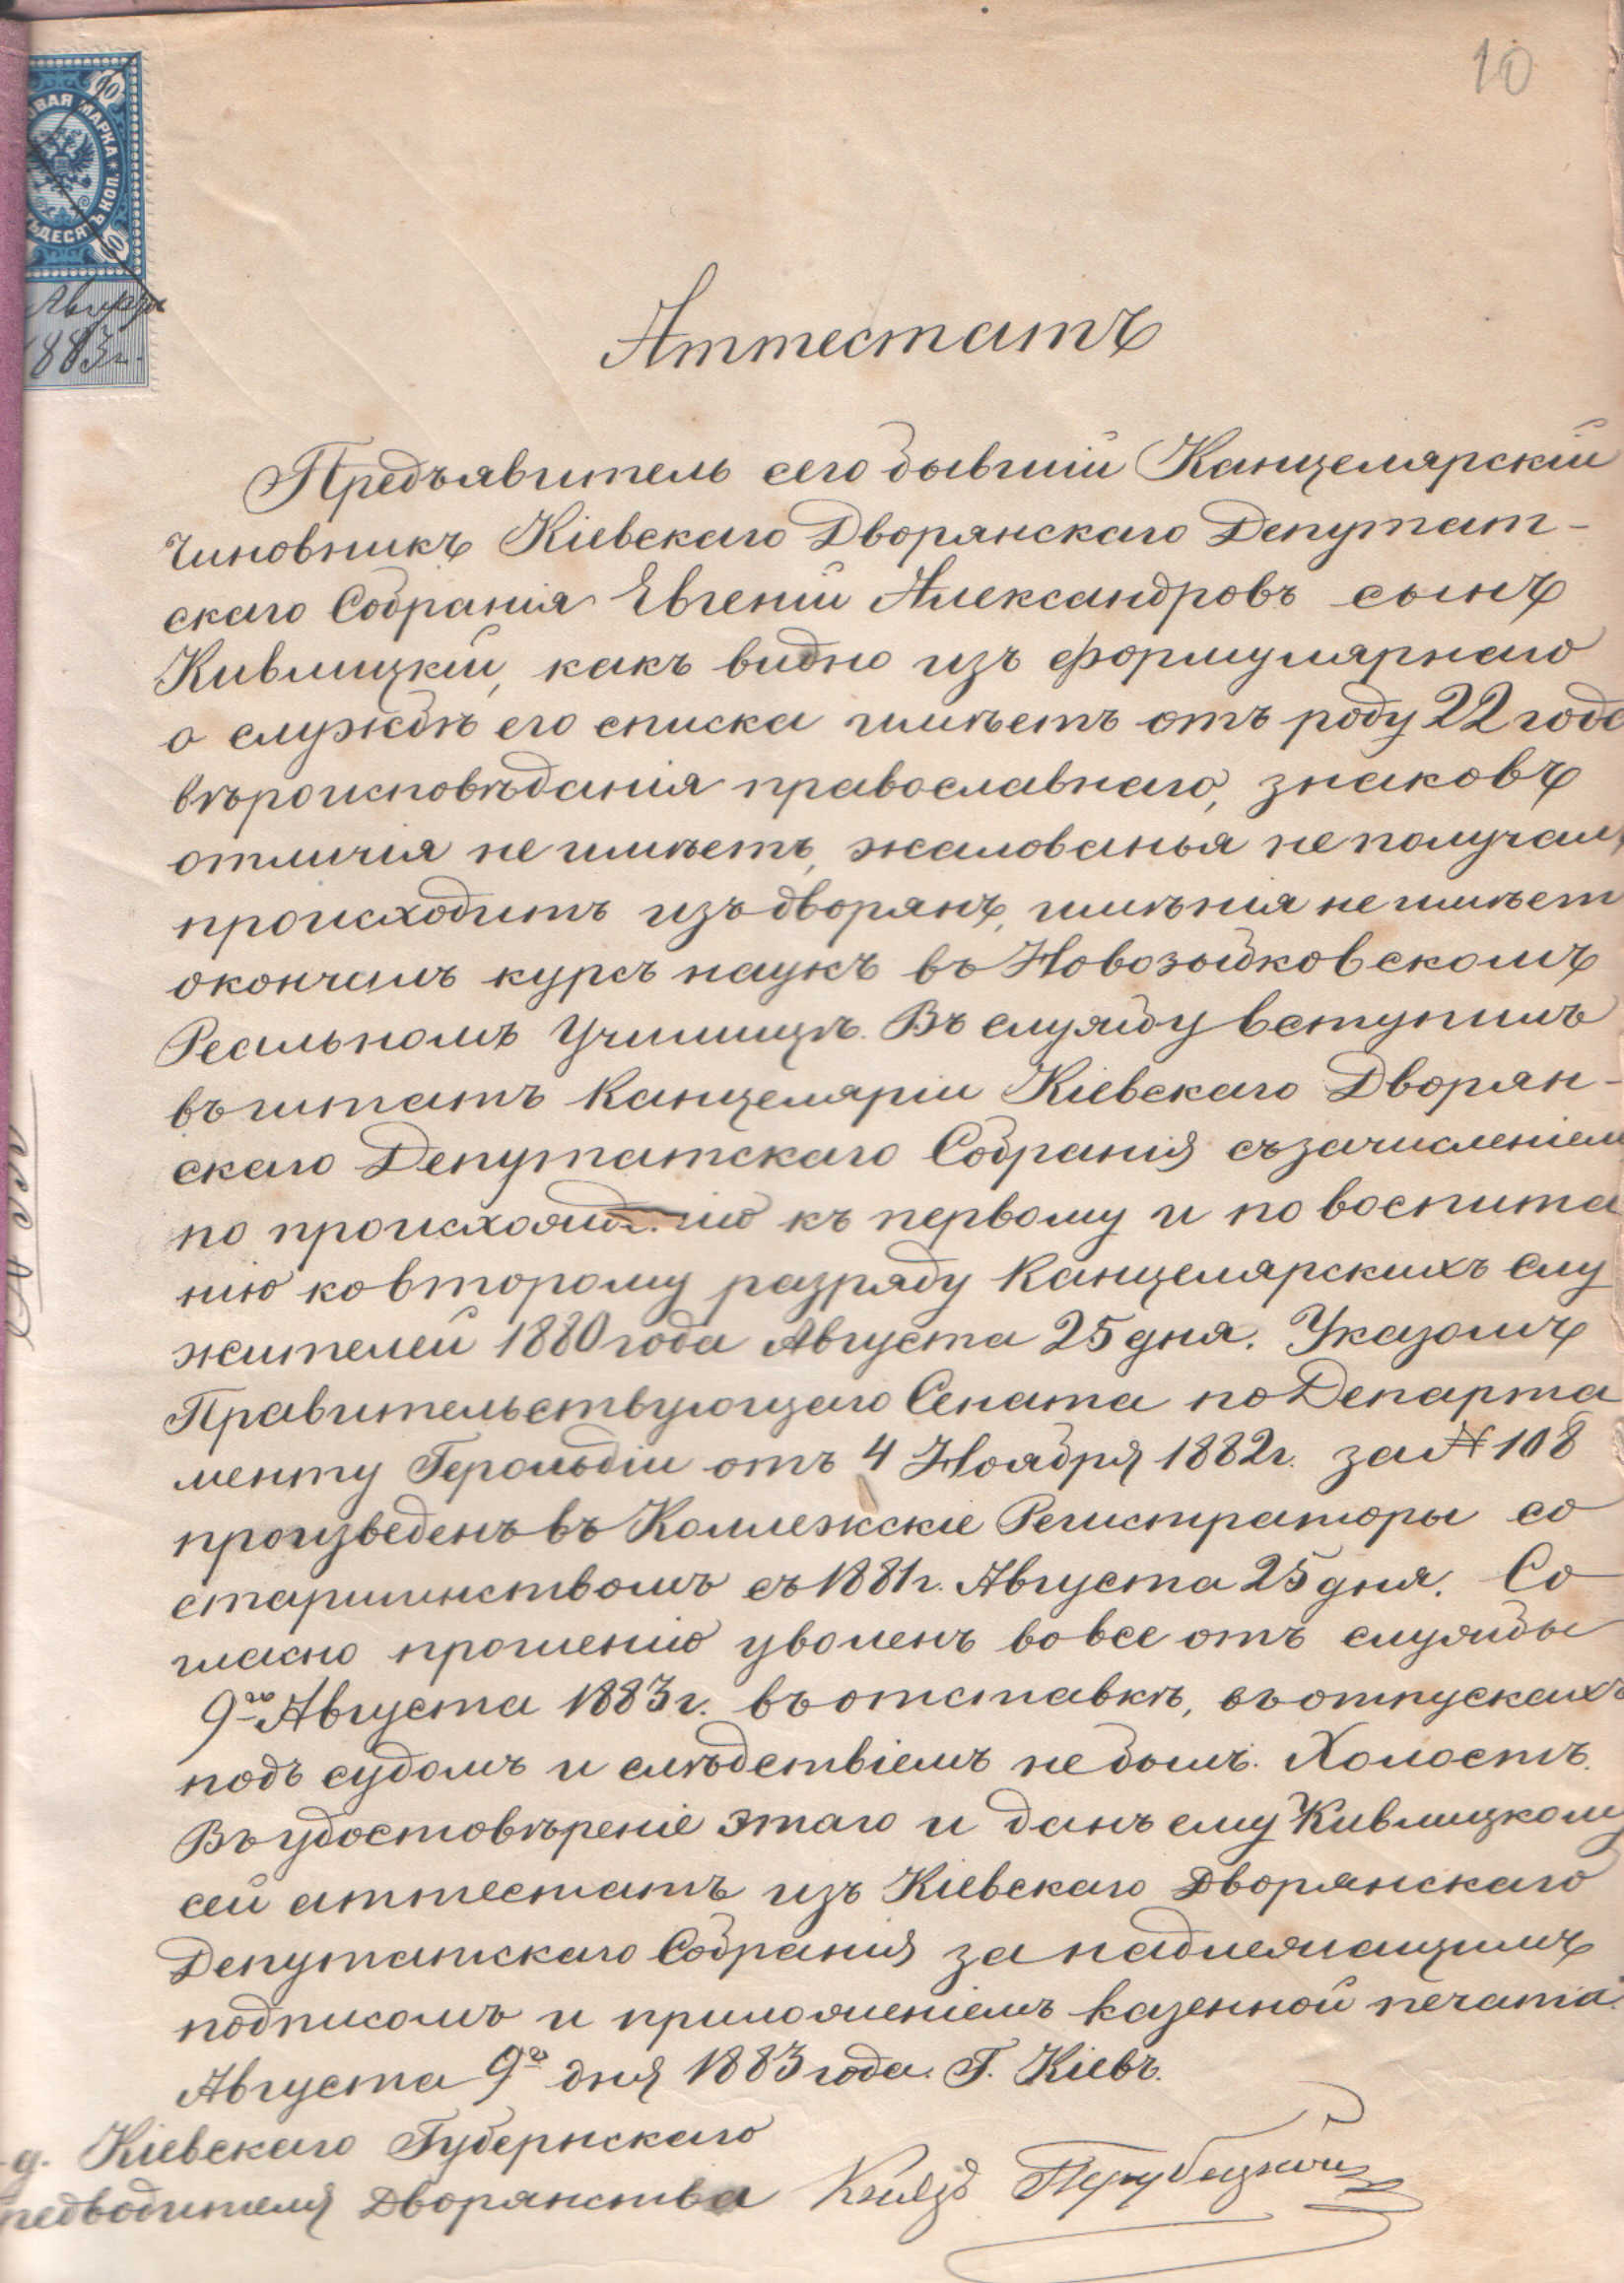 10
ОВАЯ МАРКА
ЬДЕСЯТЬ КОП.
Августа
1883г.
Аттестатъ
Предъявитель сего бывшій Канцелярскій
Чиновникъ Кіевскаго Дворянскаго Депутат-
скаго Собранія Евгеній Александровъ сынъ
Кивлицкій, какъ видно изъ формулярнаго
о службѣ его списка имѣетъ отъ роду 22 года
вѣроисповѣданія православнаго, знаковъ
отличія не имѣетъ, жалованья не получалъ,
происходитъ изъ дворянъ, имѣнія не имѣет
окончилъ курсъ наукъ въ Новозыбковскомъ
Реальномъ Училищѣ. Въ службу вступилъ
въ штатъ Канцеляріи Кіевскаго Дворян-
скаго Депутатскаго Собранія съ зачисленіем
по происхожденію къ первому и по воспита
нію ко второму разряду Канцелярскихъ слу
жителей 1880 года Августа 25 дня. Указомъ
Правительствующаго Сената по Департа
менту Герольдіи отъ 4 Ноября 1882г. за № 108
произведенъ въ Коллежскіе Регистраторы со
старшинствомъ съ 1881г. Августа 25 дня. Со
гласно прошенію уволенъ вовсе отъ службы
9го Августа 1883г. въ отставкѣ, въ отпускахъ
подъ судомъ и слѣдствіемъ не былъ. Холостъ.
Въ удостовѣреніе этаго и данъ ему Кивлицкому
сей аттестатъ изъ Кіевскаго Дворянскаго
Депутатскаго Собранія за надлежащимъ
подписомъ и приложеніемъ казенной печати.
Августа 9го дня 1883 года. Г. Кіевъ.
д. Кіевскаго Губернскаго
редводителя Дворянства Князь